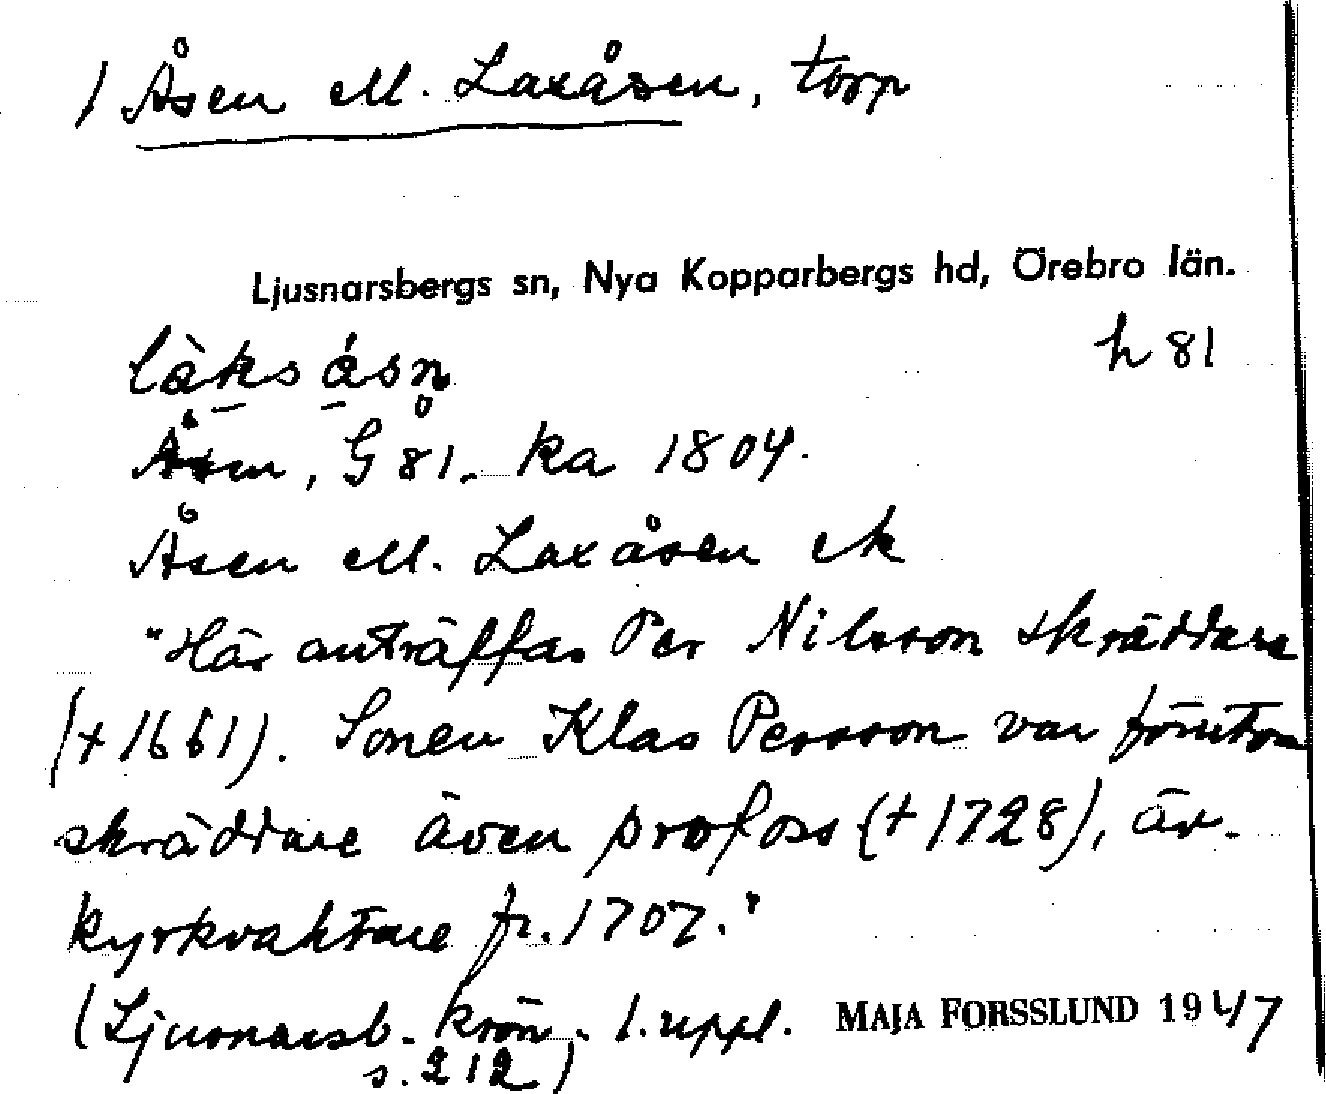 1 Åsen el. Laxåsen, torp
Ljusnarsbergs sn, Nya Kopparbergs hd, Örebro län.
h 81
làksásn̥
Åsen, G 81. ka 1804.
Åsen el. Laxåsen ek
"Här anträffas Per Nilsson skräddare
(+1661). Sonen Klas Persson var förutom
skräddare även profoss (+1728), äv.
kyrkvaktare fr. 1707."
(Ljusnarsb. krön. 1. uppl. MAJA FORSSLUND 1947
s. 212)